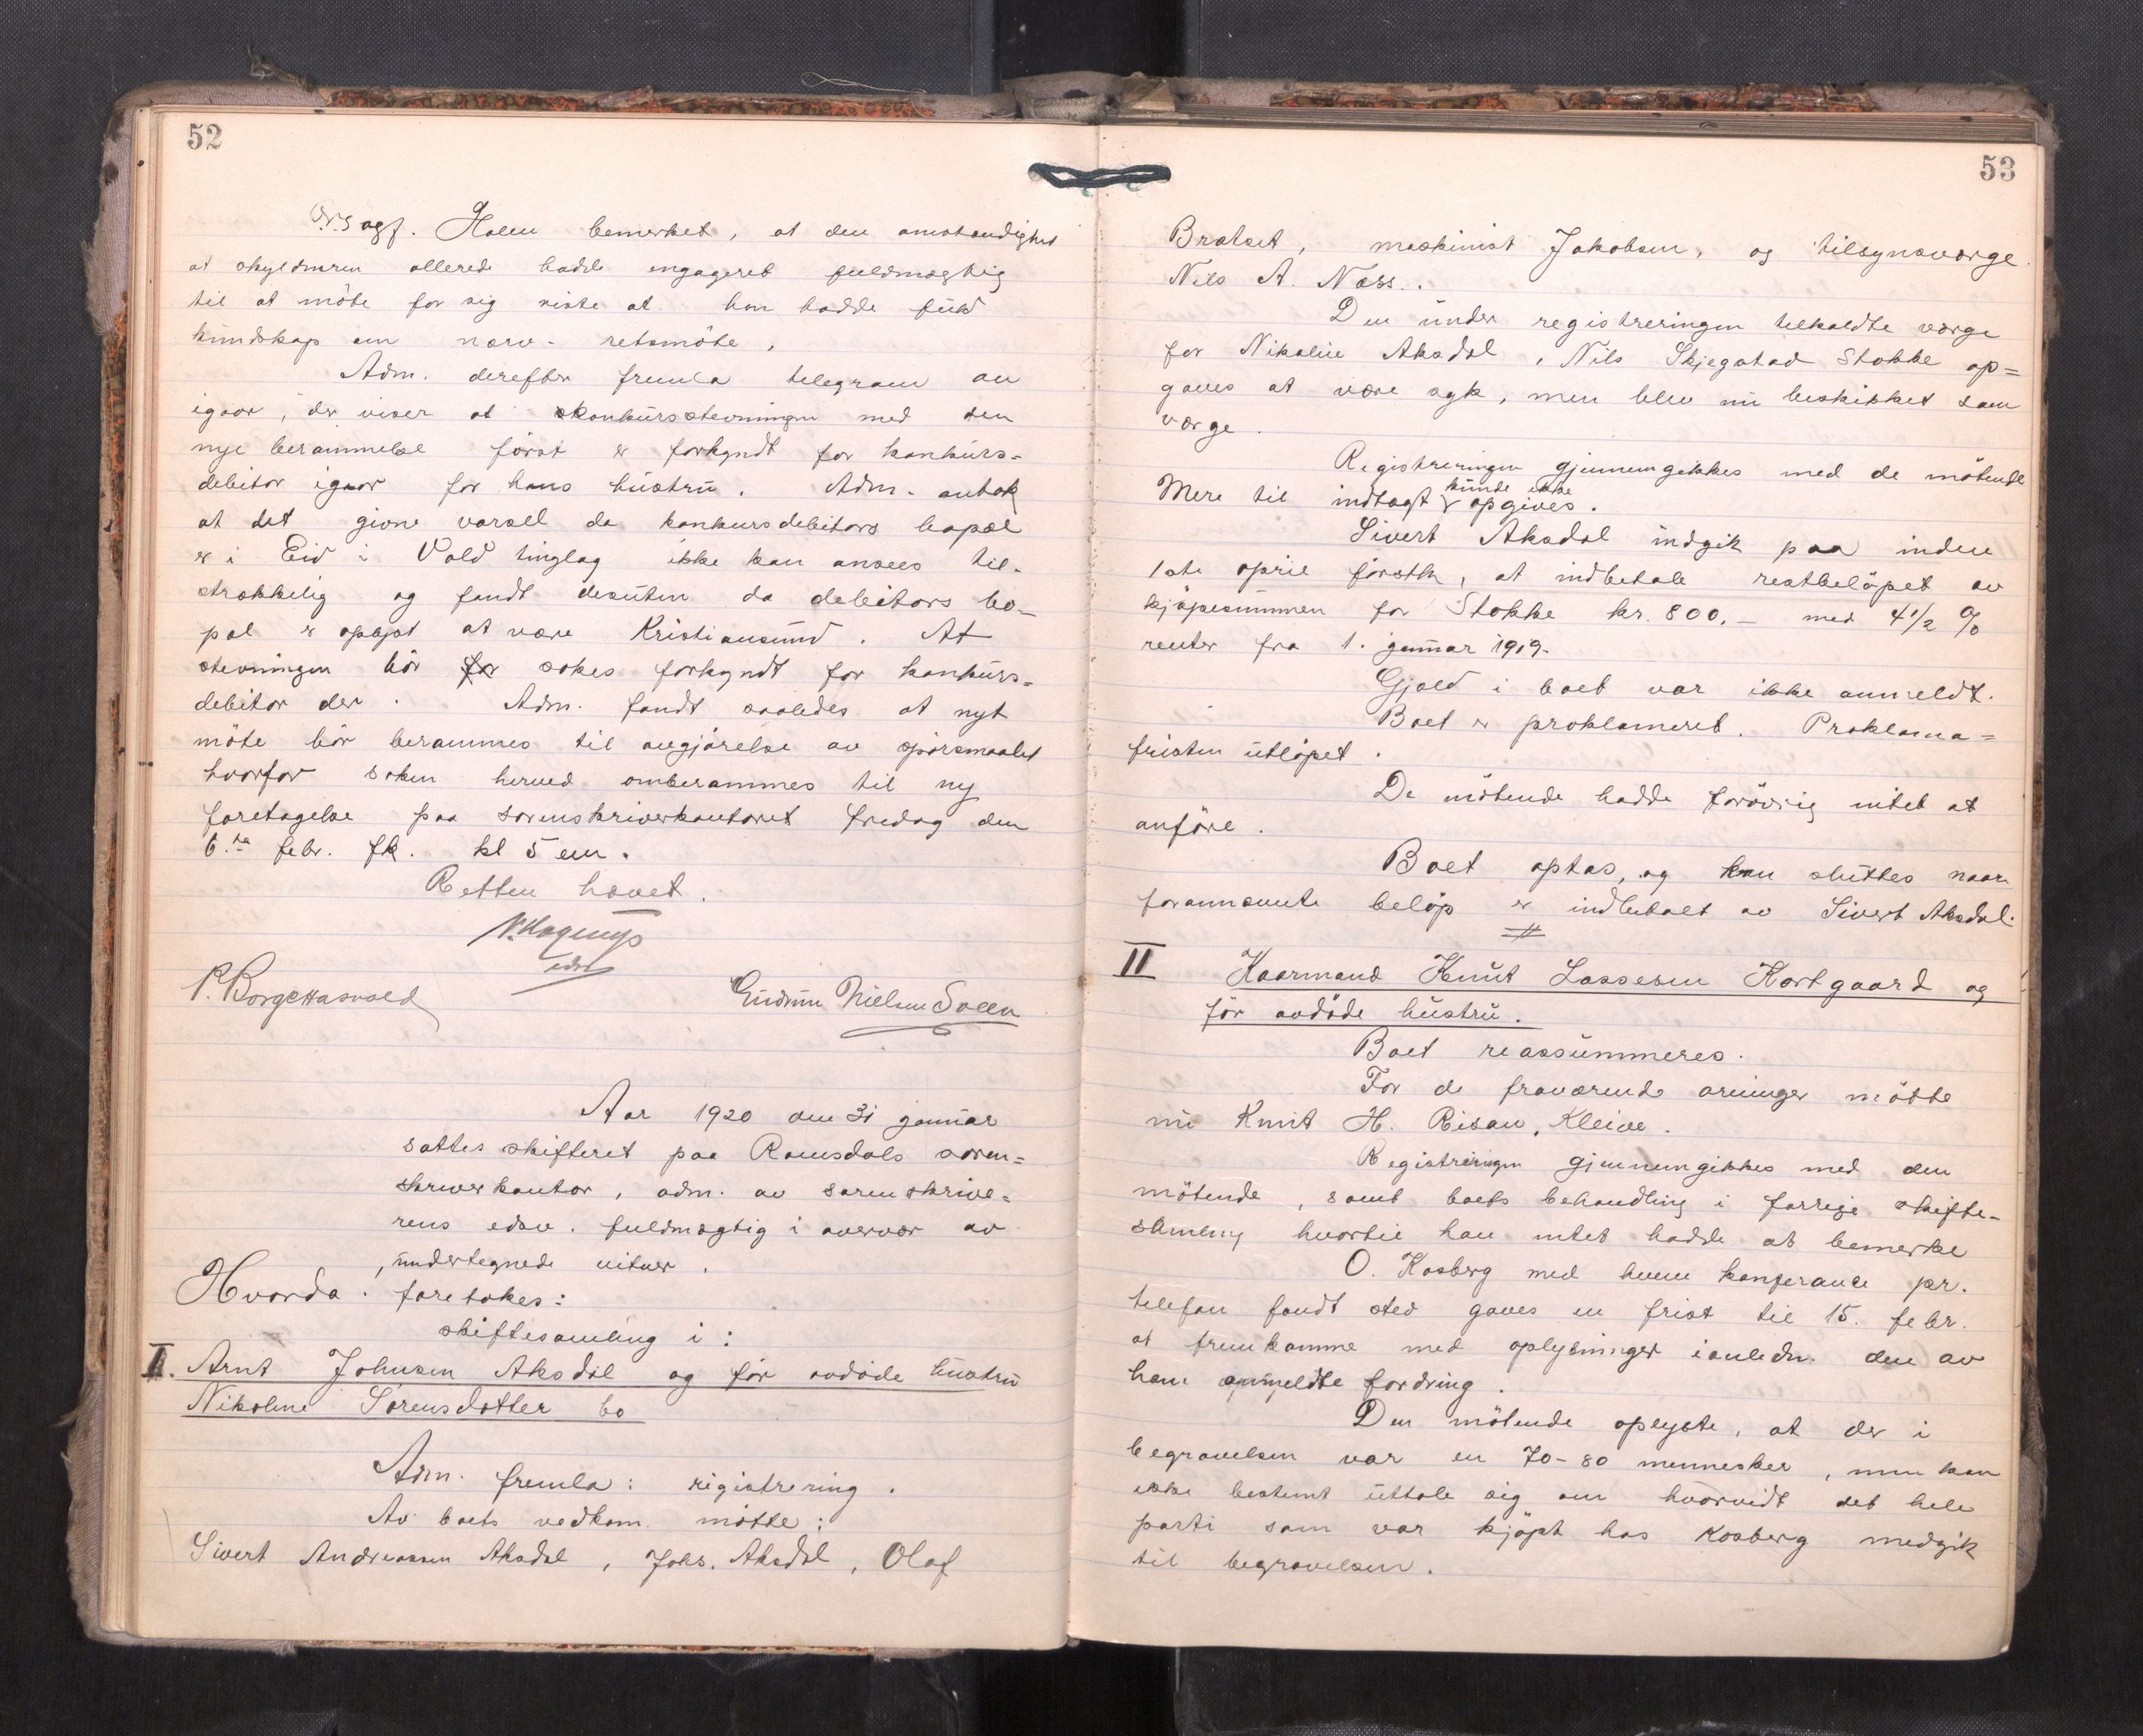 52
O.r.sagf. Holen bemerket, at den omstændighet
at skyldneren allerede hadde engageret fuldmægtig
til at møte for sig viste at han hadde fuld
kundskap om nærv. retsmøte,
Adm. derefter fremla telegram av
igaar, der viser at konkursstevningen med den
nye berammelse først er forkyndt for konkurs-
debitor igaar for hans hustru. Adm. antok
at det givne varsel da konkursdebitors bopæl
er i Eid i Vold tinglag ikke kan ansees til-
strækkelig og fandt desuten da debitors bo-
pæl er oplyst at være Kristiansund. At
stevningen bör for søkes forkyndt for konkurs-
debitor der. Adm. fandt saaledes at nyt
möte bör berammes til avgjörelse av spörsmaalet
hvorfor saken herved omberammes til ny
foretagelse paa sorenskriverkontoret fredag den
6.te febr. fk. kl 5 em.
Retten hævet.
edsv
P. Borgehasvold
Gudrun Nielsen Sveen
Aar 1920 den 31 januar
sattes skifteret paa Romsdals soren=
skriverkontor, adm. av sorenskrive=
rens edsv. fuldmægtig i overvær av
undertegnede vitner.
Hvorda foretokes:
skiftesamling i:
I. Arnt Johnsen Aksdal og før avdøde hustru
Nikoline Sørensdatter bo
Adm. fremla: registrering.
Av boets vedkom. møtte:
Sivert Andreassen Aksdal, Johs. Aksdal, Olaf
53
Brætset, maskinist Jakobsen, og tilsynsværge
Nils A. Næss.
Den under registreringen tilkaldte værge
for Nikoline Aksdal, Nils Skjegstad Stokke op=
gaves at være syk, men blev nu beskikket som
værge.
Registreringen gjennemgikkes med de mötende
Mere til indtægt kunde ikke opgives.
Sivert Aksdal indgik paa inden
1ste april førstk, at indbetale restbelöpet av
kjöpesummen for Stokke kr. 800,- med 4 1/2 %
renter fra 1. januar 1919.
Gjæld i boet var ikke anmeldt.
Boet er proklameret. Proklama=
fristen utlöpet.
De mötende hadde forövrig intet at
anföre.
Boet optas, og kan sluttes naar
forannævnte belöp er indbetalt av Sivert Aksdal.
II Kaarmand Knut Lassesen Kortgaard og
før avdöde hustru.
Boet reassummeres.
For de fraværende arvinger mötte
nu Knut H. Risan, Kleive.
Registreringen gjennemgikkes med den
mötende, samt boets behandling i forrige skifte-
samling hvortil han intet hadde at bemerke
O. Kosberg med hvem konferance pr.
telefon fandt sted gaves en frist til 15. febr.
at fremkomme med oplysninger i anledn. den av
ham anmeldte fordring.
Den mötende oplyste, at der i
begravelsen var en 70-80 mennesker, men kan
ikke bestemt uttale sig om hvorvidt det hele
parti som var kjöpt hos Kosberg medgik
til begravelsen.